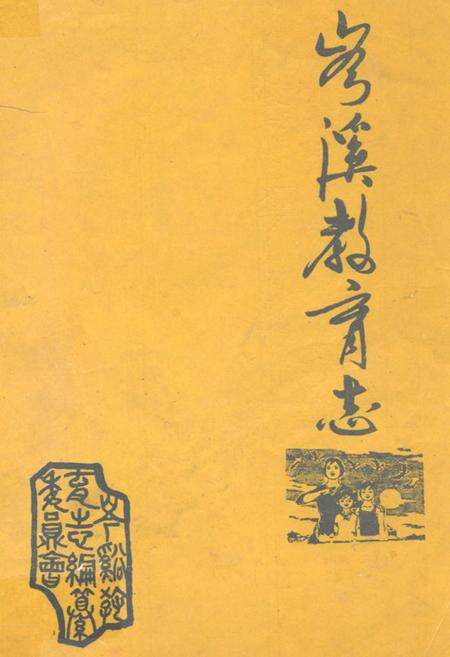 岑溪教育志
岑谿教
育志編纂
委員會